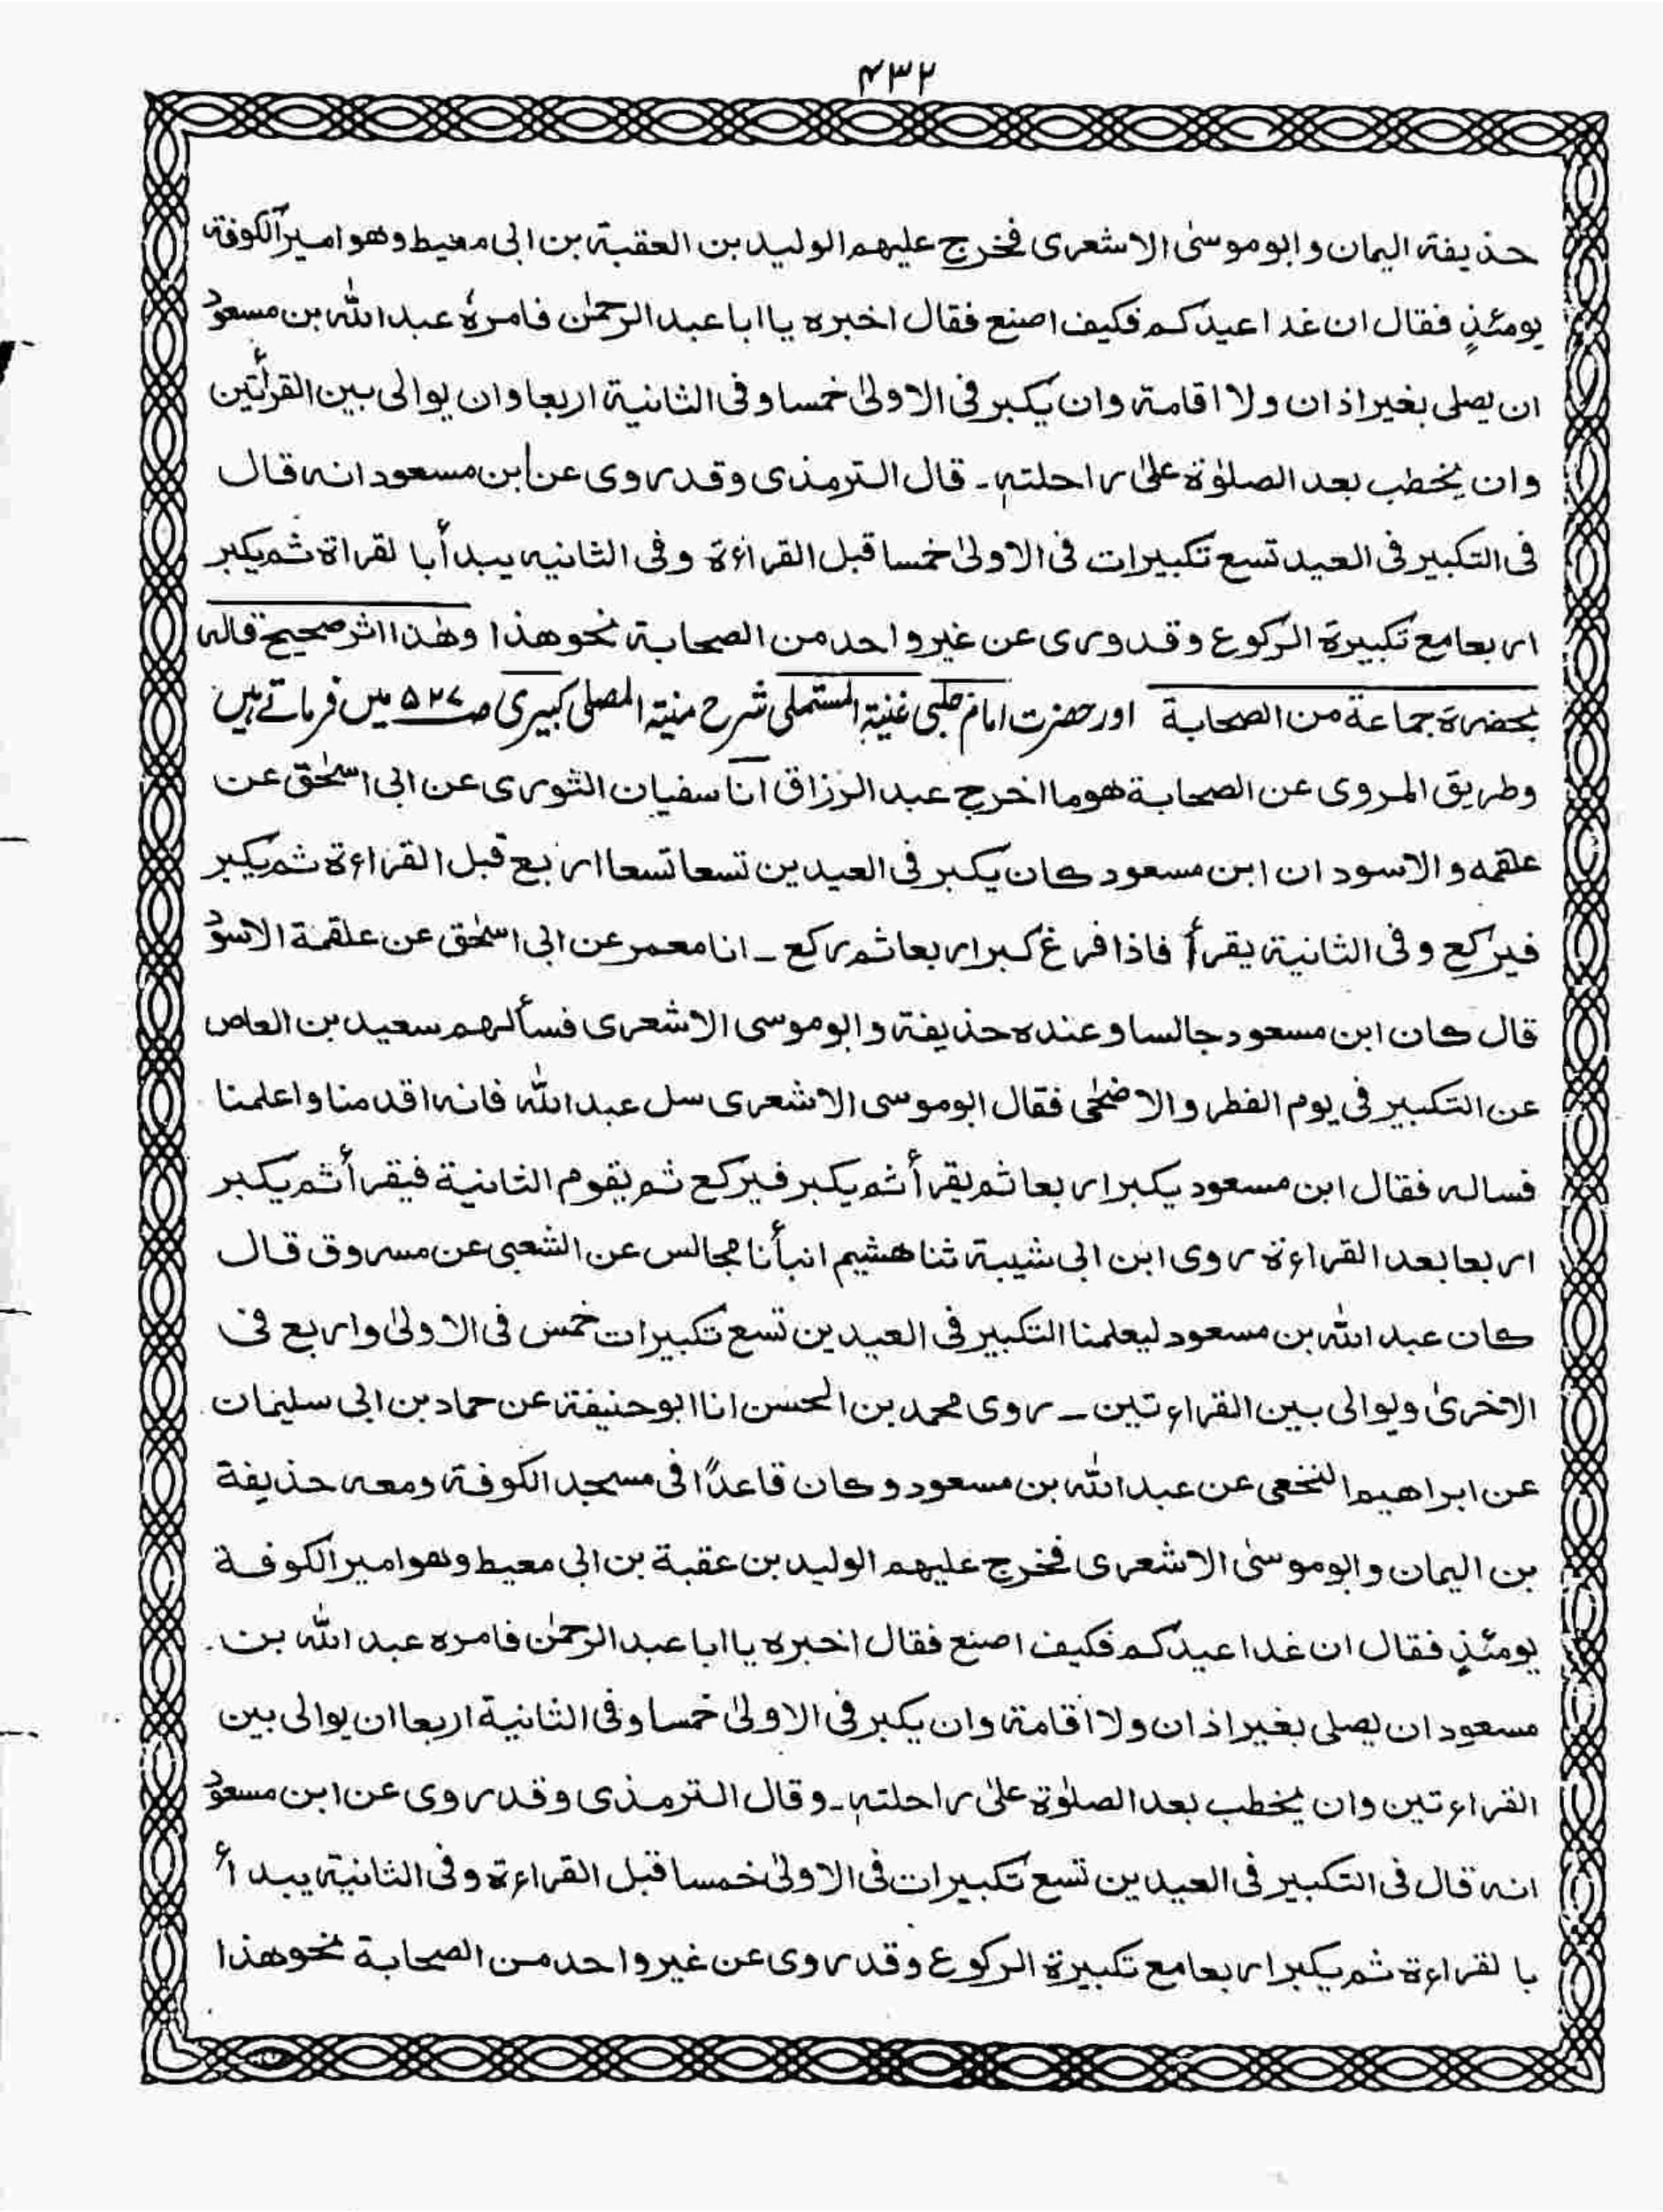 ۴۳۲
حذیفة الیمان وابوموسیٰ الاشعری فخرج علیہم الولید بن العقبة بن ابی معیط وھو امیر الکوفة
یومئذٍ فقال ان غدا عیدکم فکیف اصنع فقال اخبرہ یا ابا عبد الرحمٰن فامرہٗ عبد اللہ بن مسعود
ان یصلی بغیر اذان ولا اقامة وان یکبر فی الاولیٰ خمسا وفی الثانیة اربعا وان یوالی بین القرأتین
وان یخطب بعد الصلوٰة علیٰ راحلتہٖ۔ قال الترمذی وقد روی عن ابن مسعود انہ قال
فی التکبیر فی العید تسع تکبیرات فی الاولیٰ خمسا قبل القراءة وفی الثانیہ یبدأ با لقراة ثم یکبر
اربعا مع تکبیرة الرکوع وقد وری عن غیر واحد من الصحابة نحو ھذا وھٰذا اثر صحیح قالہ
بحضرة جماعة من الصحابة اور حضرت امام حلبی غنیۃ المستملی شرح منیۃ المصلی کبیری صـ ۵۲۷ میں فرماتے ہیں
وطریق المروی عن الصحابة ھو ما اخرج عبد الرزاق انا سفیان الثوری عن ابی اسحٰق عن
علقمہ والاسود ان ابن مسعود کان یکبر فی العیدین تسعا تسعا اربع قبل القراءة ثم یکبر
فیرکع وفی الثانیة یقرأ فاذا فرغ کبر اربعا ثم رکع ۔ انا معمر عن ابی اسحٰق عن علقمة الاسود
قال کان ابن مسعود جالسا وعندہ حذیفة وابوموسی الاشعری فسألہم سعید بن العاص
عن التکبیر فی یوم الفطر والاضحٰی فقال ابوموسی الاشعری سل عبد اللہ فانہ اقدمنا واعلمنا
فسالہ فقال ابن مسعود یکبر اربعا ثم یقرأ ثم یکبر فیرکع ثم یقوم الثانیة فیقرأ ثم یکبر
اربعا بعد القراءة روی ابن ابی شیبة ثنا ھشیم انبأنا مجالس عن الشعبی عن مسروق قال
کان عبد اللہ بن مسعود لیعلمنا التکبیر فی العیدین تسع تکبیرات خمس فی الاولیٰ واربع فی
الاخریٰ ویوالی بین القراءتین ۔ روی محمد بن الحسن انا ابوحنیفة عن حماد بن ابی سلیمان
عن ابراھیم النخعی عن عبد اللہ بن مسعود وکان قاعدًا فی مسجد الکوفة ومعہ حذیفة
بن الیمان وابوموسیٰ الاشعری فخرج علیہم الولید بن عقبة بن ابی معیط وھو امیر الکوفة
یومئذٍ فقال ان غدا عیدکم فکیف اصنع فقال اخبرہ یا ابا عبد الرحمٰن فامرہ عبد اللہ بن
مسعود ان یصلی بغیر اذان ولا اقامة وان یکبر فی الاولیٰ خمسا وفی الثانیة اربعا ان یوالی بین
القراءتین وان یخطب بعد الصلوٰة علیٰ راحلتہٖ۔ وقال الترمذی وقد روی عن ابن مسعود
انہ قال فی التکبیر فی العیدین تسع تکبیرات فی الاولیٰ خمسا قبل القراءة وفی الثانیة یبدأ
با لقراءة ثم یکبر اربعا مع تکبیرة الرکوع وقد روی عن غیر واحد من الصحابة نحو ھذا